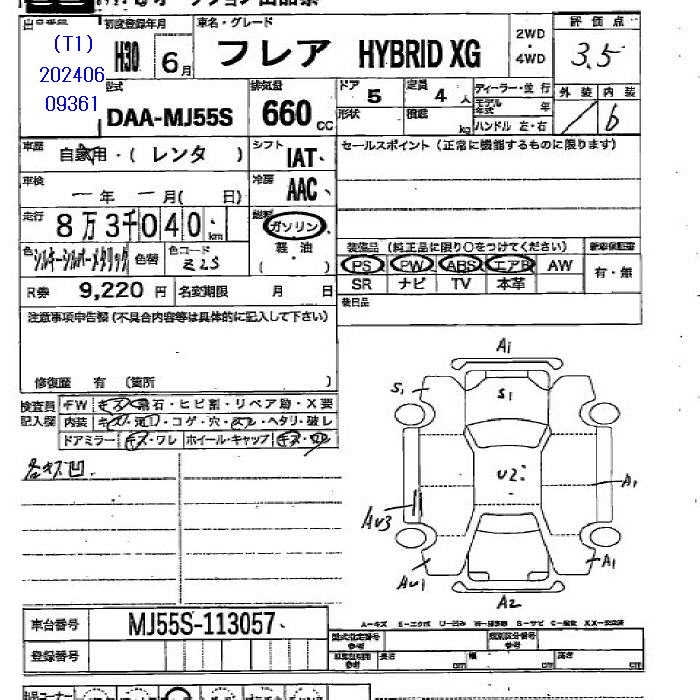 (T1)
202406
09361
初度登録年月
H30 6月
車名・グレード
フレア HYBRID XG
2WD
・
4WD
評価点
3.5
型式
DAA-MJ55S
排気量
660 cc
ドア 5
形状
定員 4 人
積載 kg
ディーラー・並行
モデル年式 年
ハンドル 左・右
外装 内装
b
車歴 自家用・(レンタ )
シフト IAT
車検 年 月( 日)
冷房 AAC
走行 8万3千040 km
燃料 ガソリン
軽油
( )
色 シルキーシルバーメタリック 色替 色コード Z2S
R券 9,220 円 名変期限 月 日
セールスポイント(正常に機能するものに限ります)
装備品(純正品に限り○をつけてください) 新車保証書
PS PW ABS エアB AW
SR ナビ TV 本革
有・無
後日品
注意事項申告欄(不具合内容等は具体的に記入して下さい)
修復歴 有 (箇所 )
検査員
記入欄
FW キズ・飛石・ヒビ割・リペア跡・X要
内装 キズ・コゲ・穴・ヘタリ・破レ
ドアミラー キズ・ワレ ホイール・キャップ キズ・ワレ
各キズ凹.
A1
S1
S1
U2
A1
AU3
AU1
A1
A2
車台番号 MJ55S-113057
登録番号
A-キズ
型式指定番号 参考
類別区分番号 参考
長さ cm 幅 cm 高さ cm